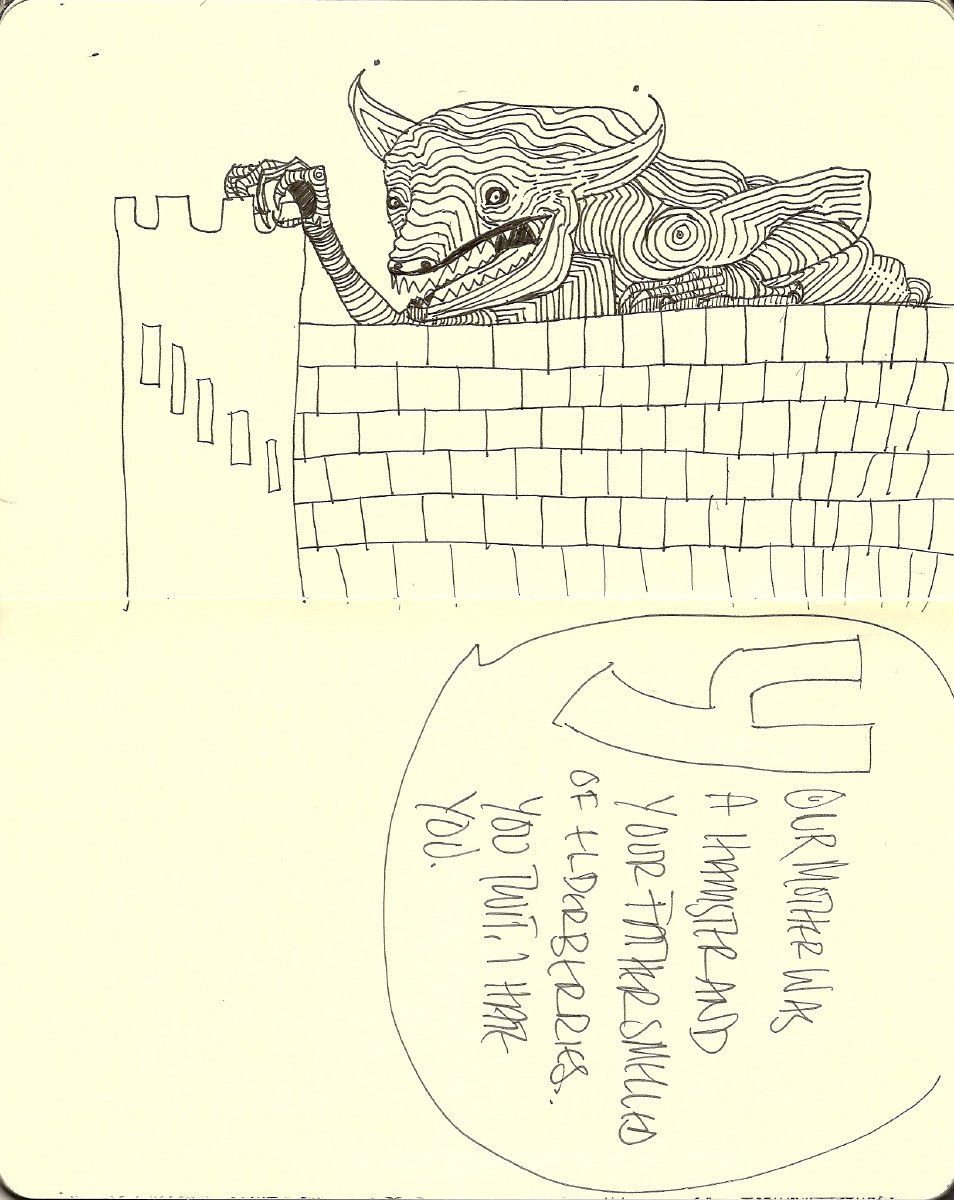 YOUR MOTHER WAS
A HAMSTER AND
YOUR FATHER SMELLED
OF ELDERBERRIES.
YOU TWIT, I HATE
YOU.